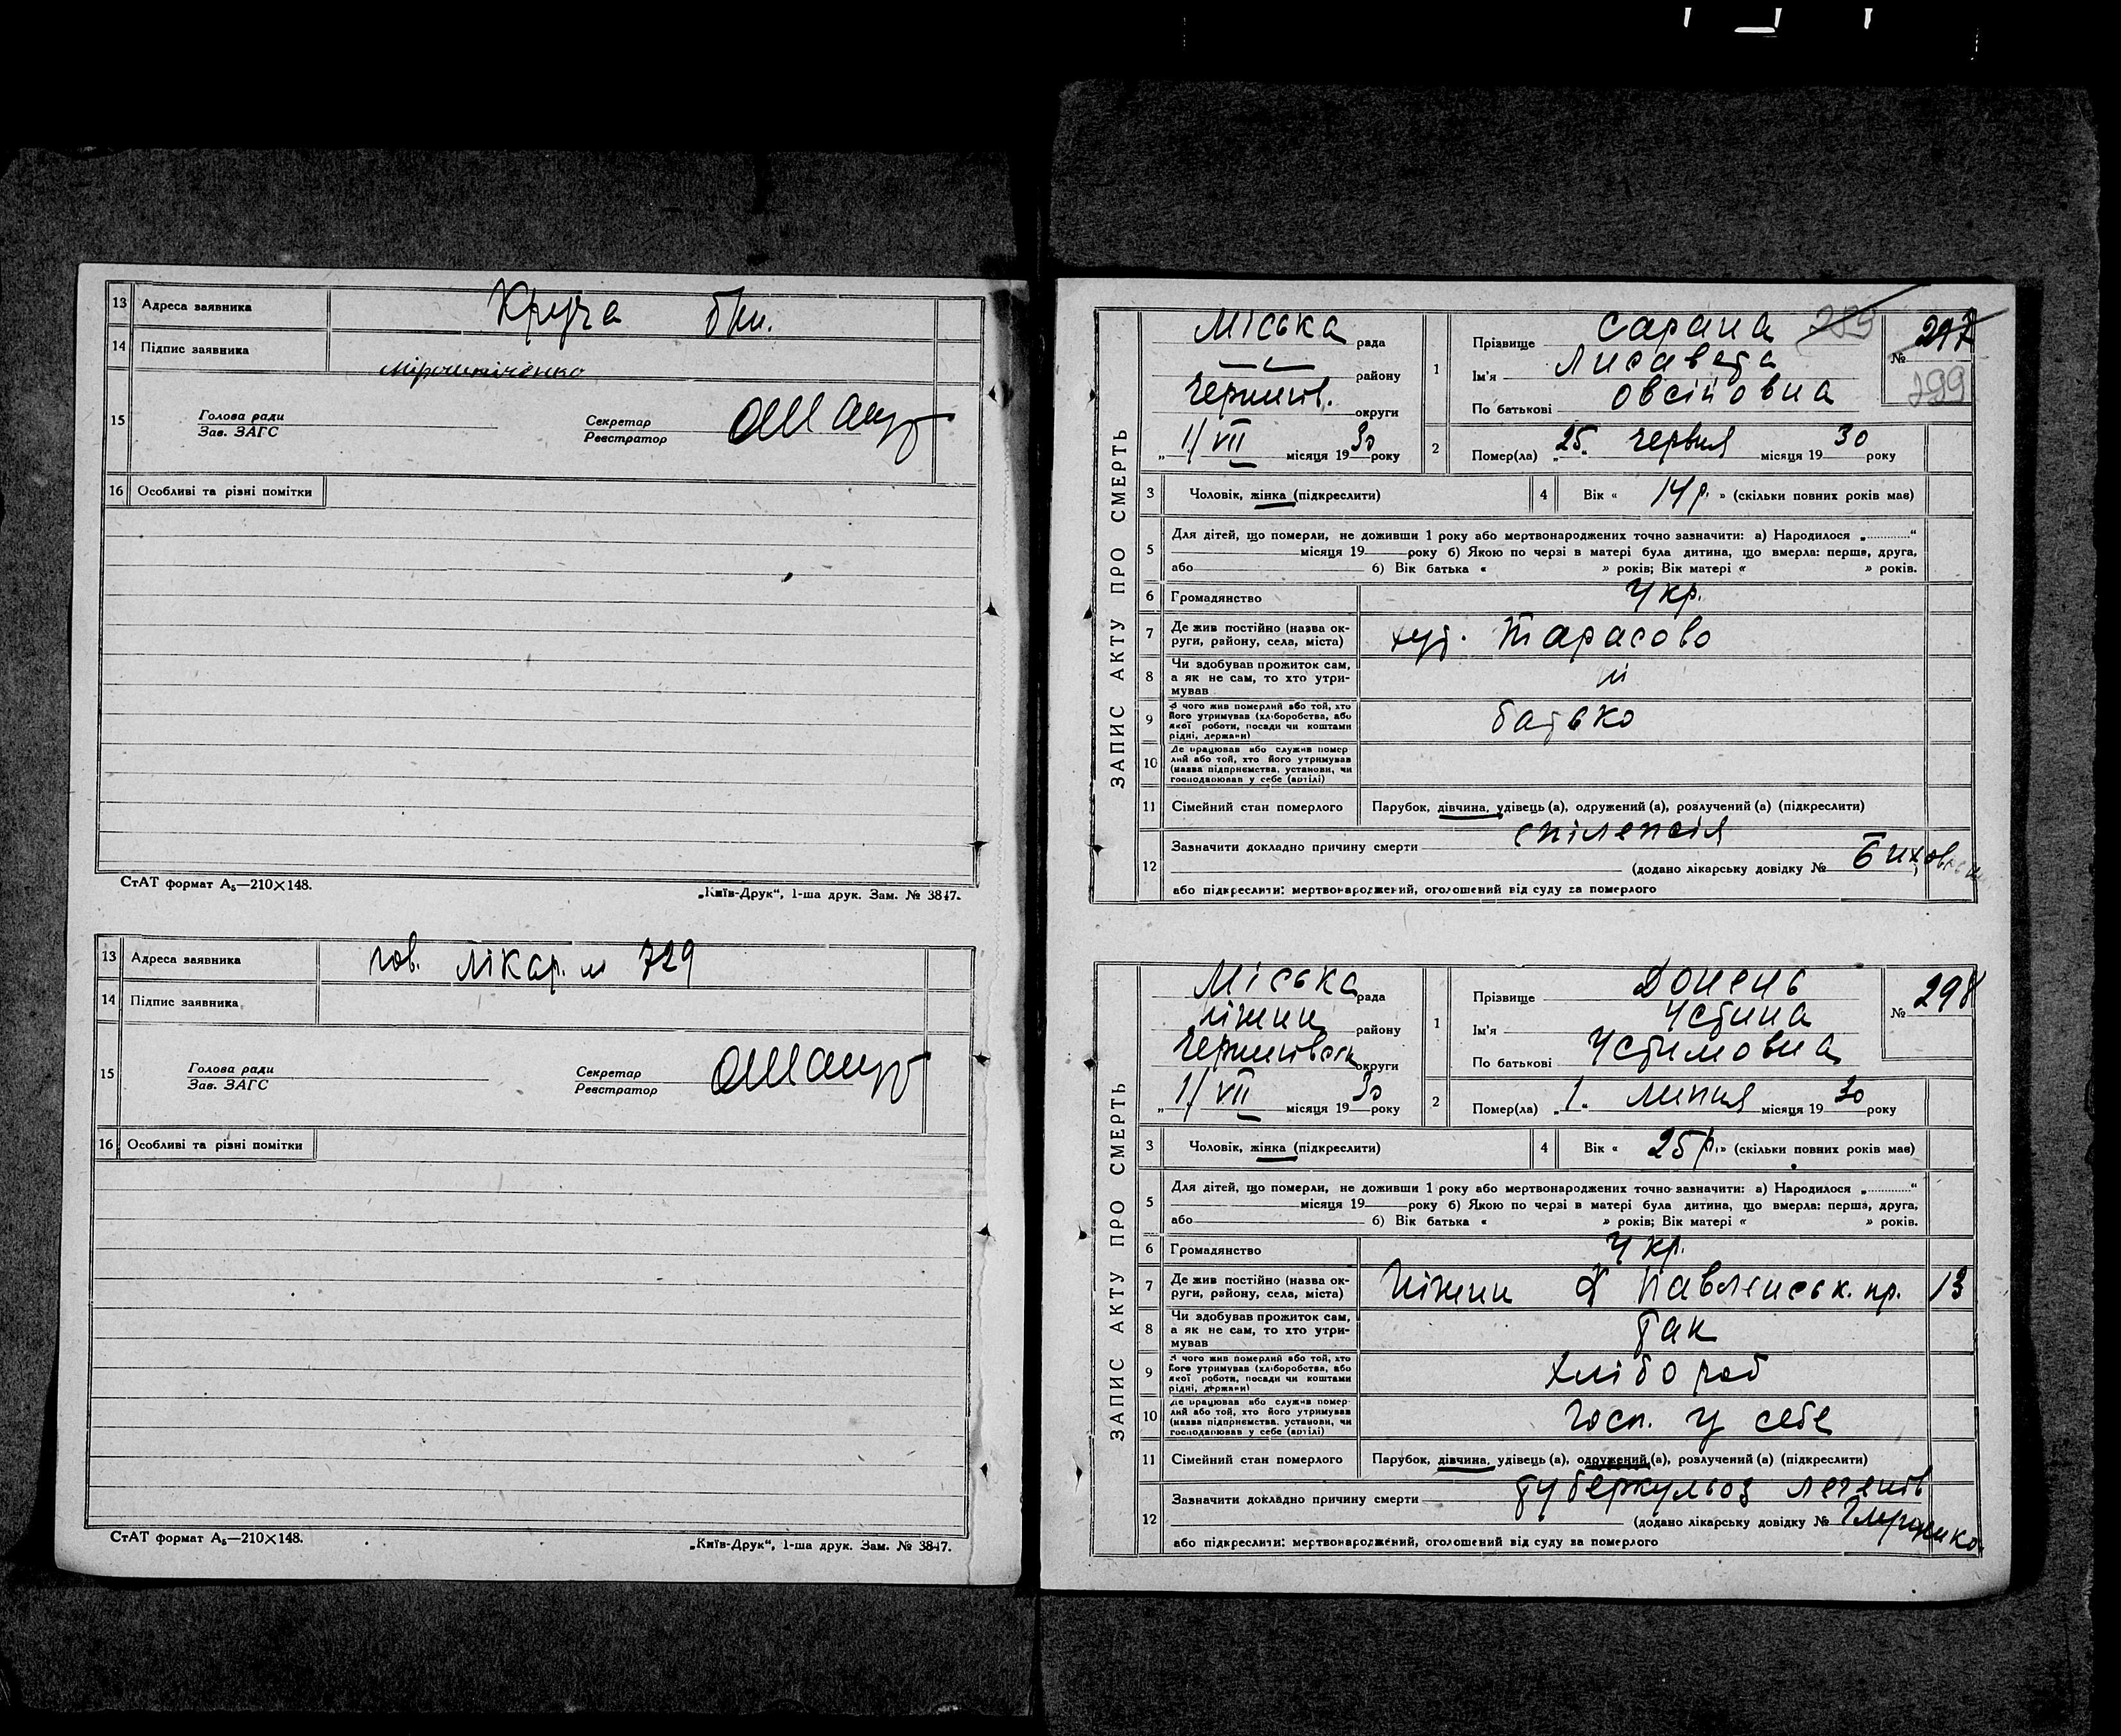 13 Адреса заявника Круча 6 кн.
14 Підпис заявника Мірошніченко
15 Голова ради
Зав. ЗАГС
Секретар
Реєстратор
16 Особливі та різні помітки
СтАТ формат А₅—210×148.
„Київ-Друк“, 1-ша друк. Зам. № 3847.
13 Адреса заявника гов. лікар. № 729
14 Підпис заявника
15 Голова ради
Зав. ЗАГС
Секретар
Реєстратор
16 Особливі та різні помітки
СтАТ формат А₅—210×148.
„Київ-Друк“, 1-ша друк. Зам. № 3847.
ЗАПИС АКТУ ПРО СМЕРТЬ
Міська рада
району
Чернигів. округи
„ 1/ VII місяця 1930 року
1 Прізвище Сарана
Ім'я Лисавета
По батькові Овсійовна
№ 297
299
2 Помер(ла) „25„ червня місяця 1930 року
3 Чоловік, жінка (підкреслити)
4 Вік « 14 р. » (скільки повних років має)
5 Для дітей, що померли, не доживши 1 року або мертвонароджених точно зазначити: а) Народилося „............“
місяця 19 року б) Якою по черзі в матері була дитина, що вмерла: перша, друга,
або 6) Вік батька « » років; Вік матері « » років.
6 Громадянство Укр.
7 Де жив постійно (назва округи, району, села, міста) хут. Тарасово
8 Чи здобував прожиток сам, а як не сам, то хто утримував ні
9 З чого жив померлий або той, хто його утримував (хліборобства, або якої роботи, посади чи коштами рідні, держави) батько
10 Де працював або служив померлий або той, хто його утримував (назва підприємства, установи, чи господарював у себе (артілі)
11 Сімейний стан померлого Парубок, дівчина, удівець (а), одружений (а), розлучений (а) (підкреслити)
12 Зазначити докладно причину смерти епілепсія
(додано лікарську довідку №
або підкреслити: мертвонароджений, оголошений від суду за померлого
ЗАПИС АКТУ ПРО СМЕРТЬ
Міська рада
Ніжин району
Чернигівськ округи
„ 1/ VII місяця 1930 року
1 Прізвище Донець
Ім'я Устина
По батькові Устимовна
№ 298
2 Помер(ла) „1„ липня місяця 1930 року
3 Чоловік, жінка (підкреслити)
4 Вік « 25 р. » (скільки повних років має)
5 Для дітей, що померли, не доживши 1 року або мертвонароджених точно зазначити: а) Народилося „............“
місяця 19 року б) Якою по черзі в матері була дитина, що вмерла: перша, друга,
або 6) Вік батька « » років; Вік матері « » років.
6 Громадянство Укр.
7 Де жив постійно (назва округи, району, села, міста) Ніжин Павленськ. пр. 13
8 Чи здобував прожиток сам, а як не сам, то хто утримував так
9 З чого жив померлий або той, хто його утримував (хліборобства, або якої роботи, посади чи коштами рідні, держави) хлібороб
10 Де працював або служив померлий або той, хто його утримував (назва підприємства, установи, чи господарював у себе (артілі) госп. у себе
11 Сімейний стан померлого Парубок, дівчина, удівець (а), одружений (а), розлучений (а) (підкреслити)
12 Зазначити докладно причину смерти туберкульоз легенів
(додано лікарську довідку №
або підкреслити: мертвонароджений, оголошений від суду за померлого